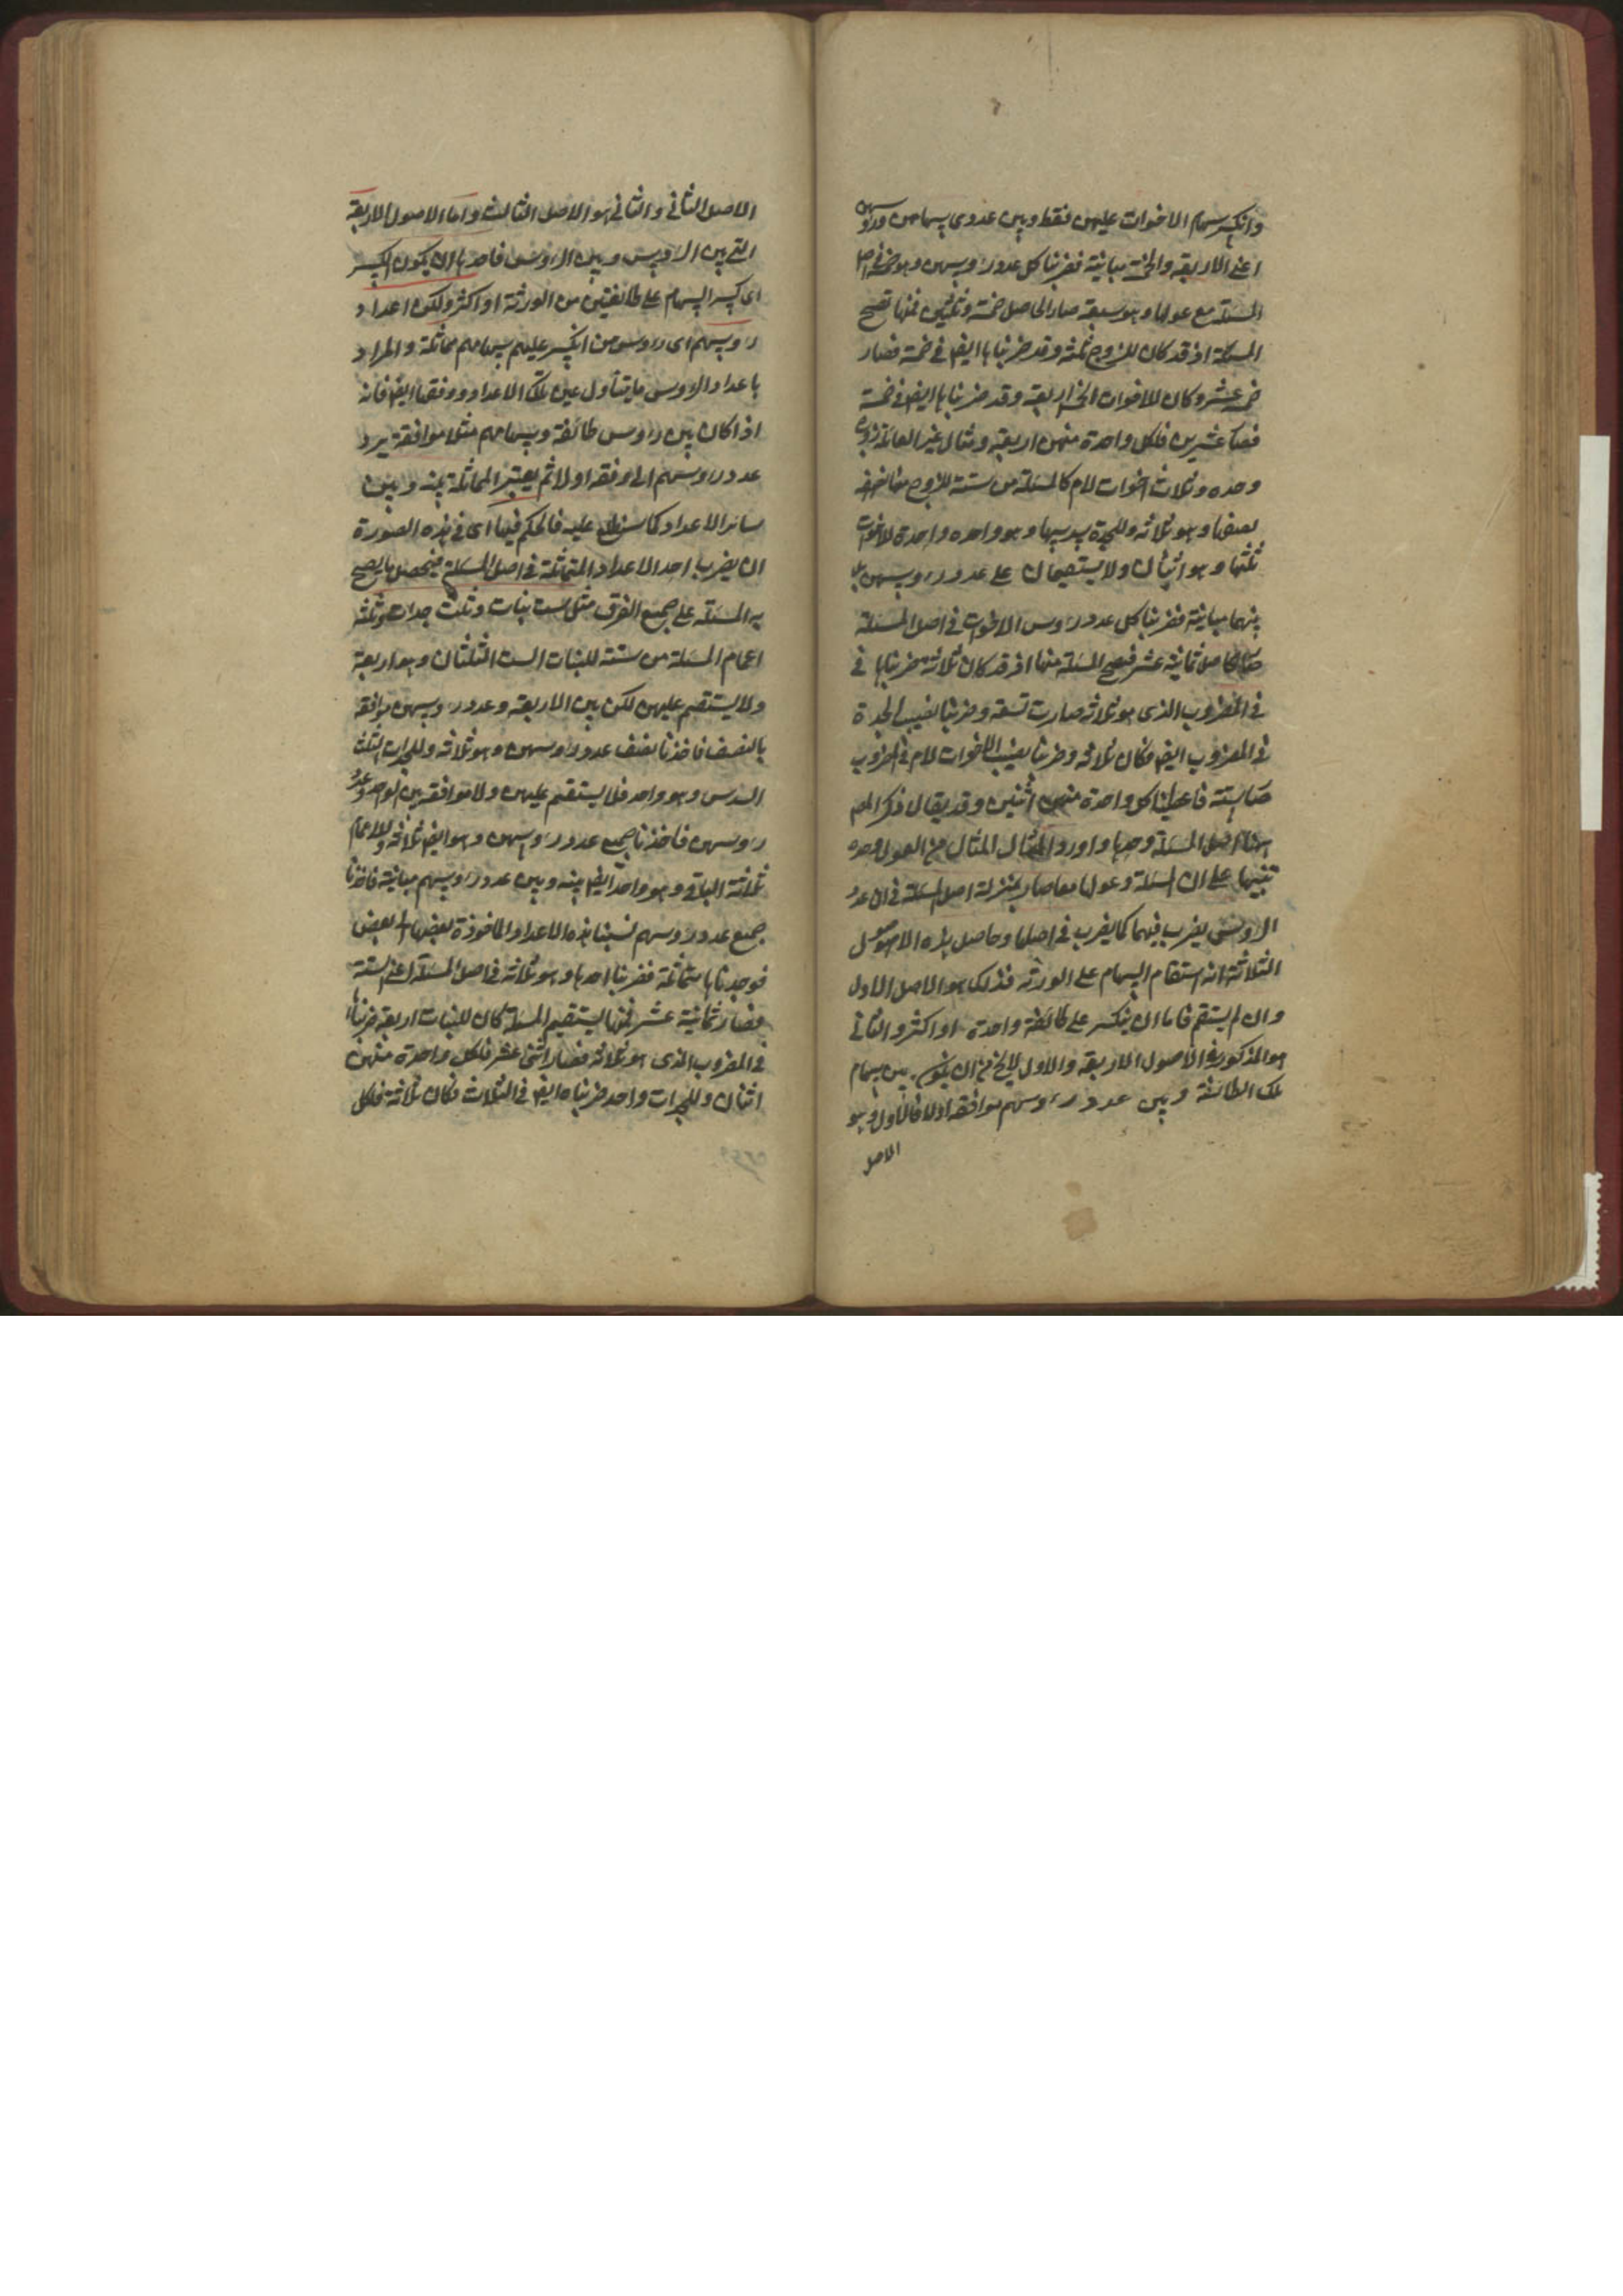 وانكسر سهام الاخوات عليهن فقط وبين عددي سهامهن ورؤسهن
اعني الاربعة والخمسة مباينة فضربنا كل عدد رؤسهن وهو خمسة في اصل
المسئلة مع عولها وهو سبعة صار الحاصل خمسة وثلثين فمنها تصح
المسئلة اذ قد كان للزوج ثلثة وقد ضربناها ايضا في خمسة فصار
خمسة عشر وكان للاخوات الخمس اربعة وقد ضربناها ايضا في خمسة
فصار عشرين فلكل واحدة منهن اربعة ومثال غير العائلة زوج
وجده وثلاث اخوات لام فالمسئلة من ستة للزوج منها نصفه
نصفها وهو ثلاثة وللجدة سدسها وهو واحده واحدة للاخوات
ثلثها وهو اثنان ولا يستقيمان على عدد رؤسهن بل
بينهما مباينة فضربنا كل عدد رؤس الاخوات في اصل المسئلة
صار الحاصل ثمانية عشر فتصح المسئلة منها اذ قد كان ثلاثة ضربناها في
في المضروب الذى هو ثلاثة صارت تسعة وضربنا نصيب الجدة
في المضروب ايضا فكان ثلاثة وضربنا نصيب الاخوات لام في المضروب
صار ستة فاعطينا كل واحدة منهن اثنين وقد يقال ذكر المص
ههنا اصل المسئلة وحدها واورد المثال المثال من العول وحده
تنبيها على ان المسئلة وعولها معا صار بمنزلة اصل المسئلة في ان عدد
الرؤس يضرب فيهما كما يضرب في اصلها وحاصل هذه الاصول
الثلاثة انه استقام السهام على الورثة فذلك هو الاصل الاول
وان لم يستقم فاما ان ينكسر على طائفة واحدة او اكثر والثاني
هو المذكور في الاصول الاربعة والاول لا يخ من ان يكون بين سهام
تلك الطائفة وبين عدد رؤسهم موافقة اولا فالاول هو
الاصل
الاصل الثاني والثاني هو الاصل الثالث واما الاصول الاربعة
التي بين الرؤس وبين الرؤس فاحدها ان يكون الكسر
اى كسر السهام على طائفتين من الورثة او اكثر ولكن اعداد
رؤسهم اى رؤس من انكسر عليهم سهامهم مماثلة والمراد
باعداد الرؤس ما يتناول عين تلك الاعداد ووفقها ايضا فانه
اذا كان بين رؤس طائفة وسهامهم مثلا موافقة يرد
عدد رؤسهم الى وفقه اولا ثم يعتبر المماثلة بينه وبين
سائر الاعداد كما ستطلع عليه فالحكم فيها اى في هذه الصورة
ان يضرب احد الاعداد المتماثلة في اصل المسئلة فيحصل ما يصح
به المسئلة على جميع الفرق مثل ست بنات وثلث جدات وثلثة
اعمام المسئلة من ستة للبنات الست الثلثان وهو اربعة
ولا يستقيم عليهن لكن بين الاربعة وعدد رؤسهن موافقة
بالنصف فاخذنا نصف عدد رؤسهن وهو ثلاثة وللجدات الثلث
السدس وهو واحد فلا يستقيم عليهن ولا موافقة بين الواحد وعدد
رؤسهن فاخذنا جميع عدد رؤسهن وهو ايضا ثلاثة وللاعمام
ثلاثة الباقي وهو واحد ايضا بينه وبين عدد رؤسهم مباينة فاخذنا
جميع عدد رؤسهم نسبنا هذه الاعداد الماخوذة بعضها الى بعض
فوجدناها متماثلة فضربنا احدها وهو ثلاثة في اصل المسئلة اعني الستة
فصار ثمانية عشر فمنها يستقيم المسئلة كان للبنات اربعة ضربناها
في المضروب الذى هو ثلاثة فصار اثني عشر فلكل واحدة منهن
اثنان وللجدات واحد ضربناه ايضا في الثلاث فكان ثلاثة فلكل